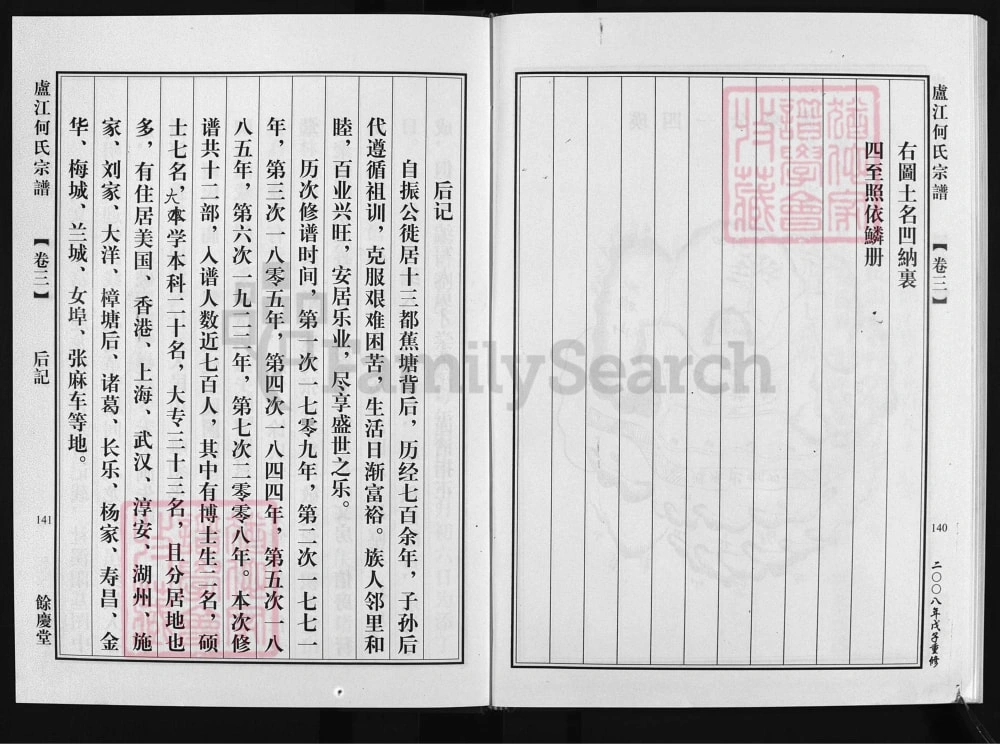 盧江何氏宗譜
【卷三】
140
二〇〇八年戊子重修
右圖土名凹納裏
四至照依鱗册
后记
自振公徙居十三都蕉塘背后，历经七百余年，子孙后
代遵循祖训，克服艰难困苦，生活日渐富裕。族人邻里和
睦，百业兴旺，安居乐业，尽享盛世之乐。
历次修谱时间，第一次一七零九年，第二次一七七一
年，第三次一八零五年，第四次一八四四年，第五次一八
八五年，第六次一九二二年，第七次二零零八年。本次修
谱共十二部，入谱人数近七百人，其中有博士生二名，硕
士七名，大学本科二十名，大专三十三名，且分居地也
多，有住居美国、香港、上海、武汉、淳安、湖州、施
家、刘家、大洋、樟塘后、诸葛、长乐、杨家、寿昌、金
华、梅城、兰城、女埠、张麻车等地。
盧江何氏宗譜
【卷三】
后記
141
餘慶堂
FamilySearch